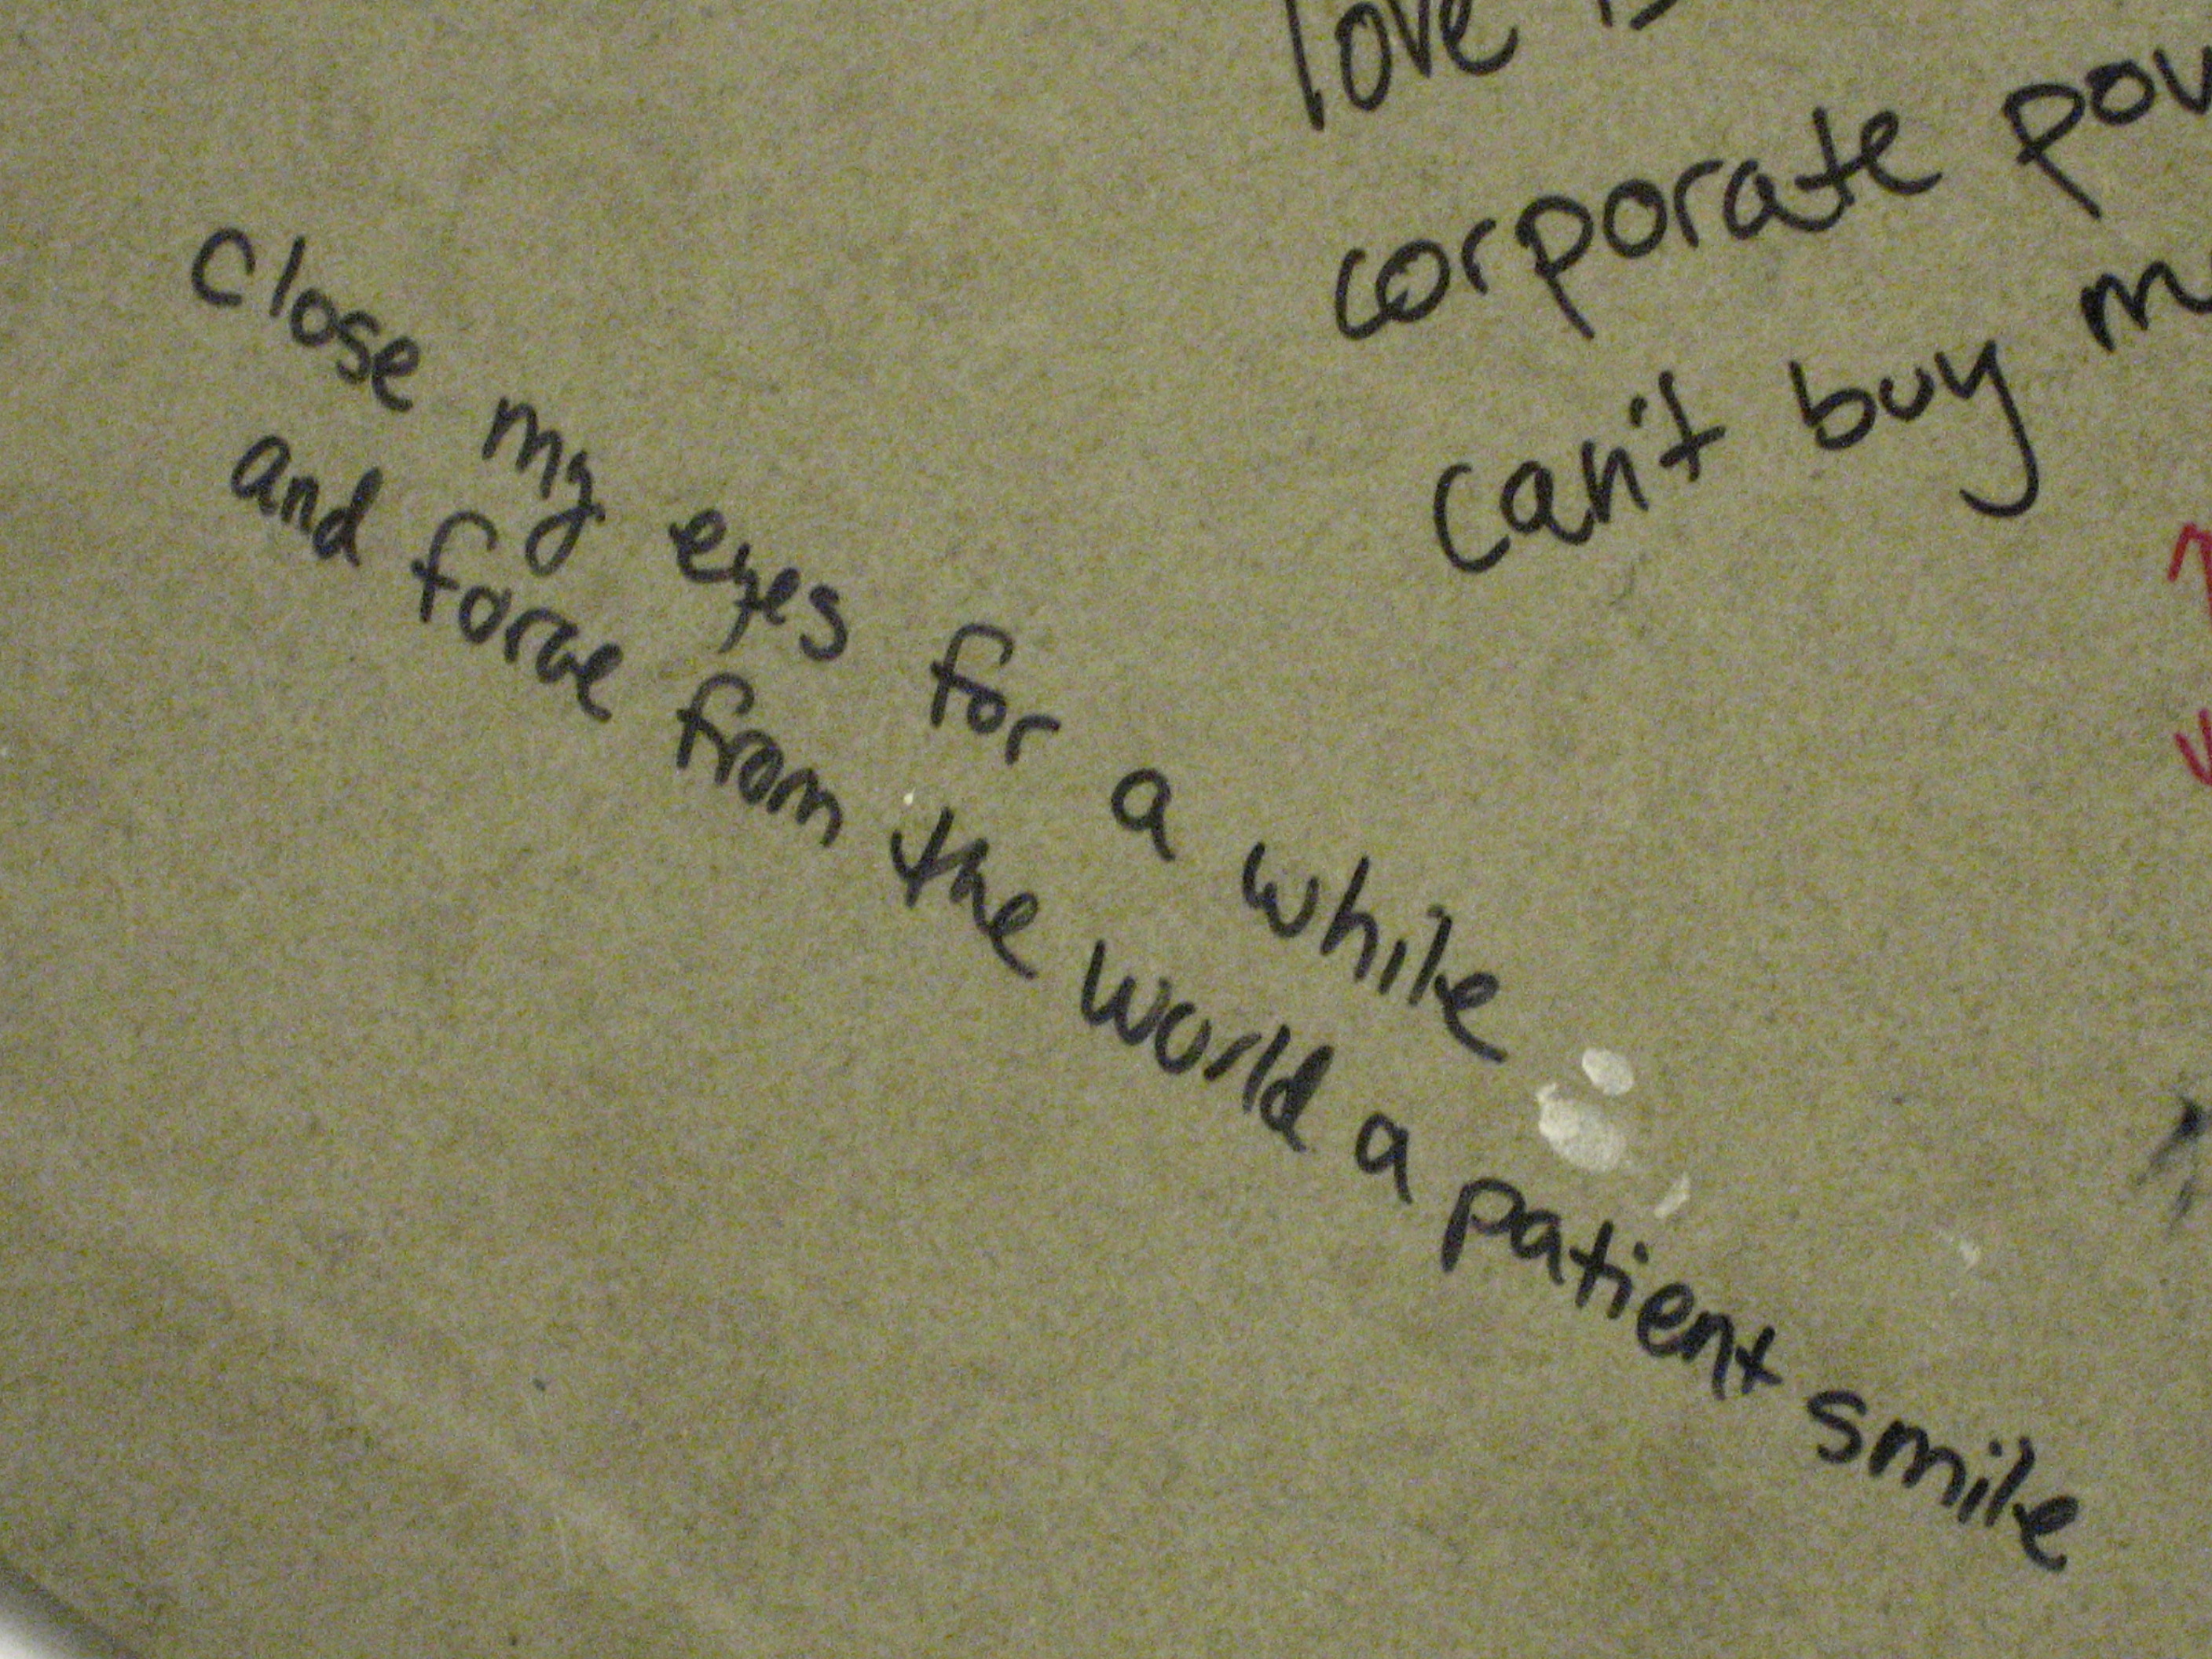 love is
corporate pow
can't buy m
close my eyes for a while
and force from the world a patient smile